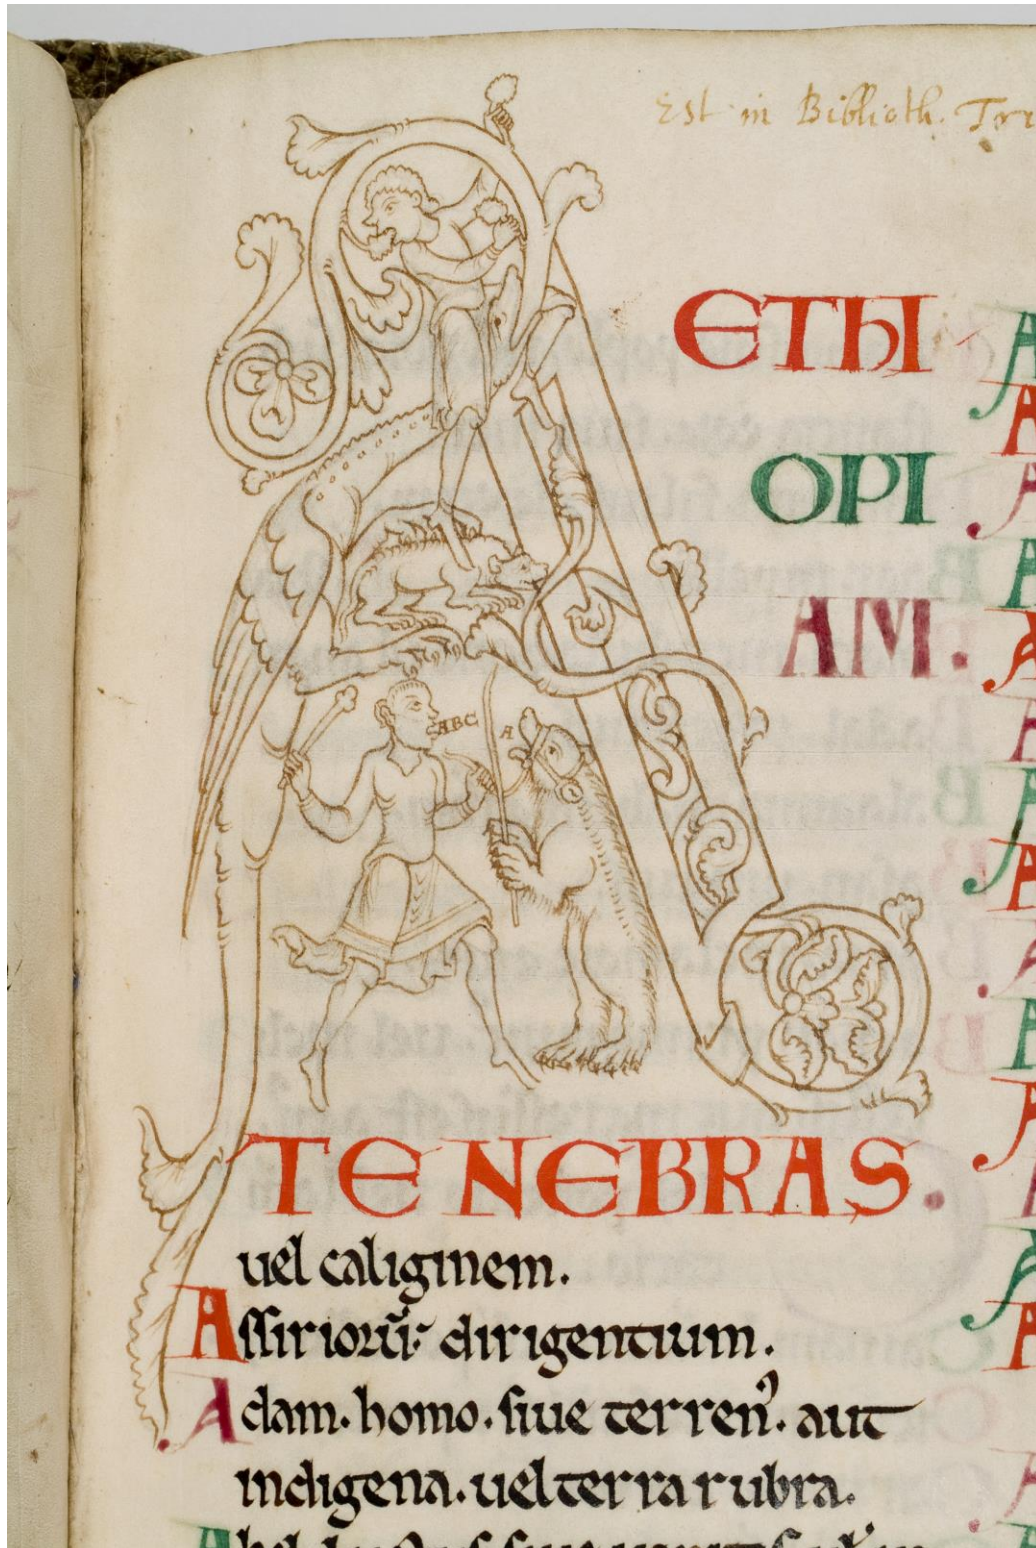 Est in Biblioth.
ETHI
OPI
AM.
ABC
A
TENEBRAS.
uel caliginem.
Assiriorū· dirigentium.
Adam. homo. siue terren᾽. aut
indigena. uel terra rubra.